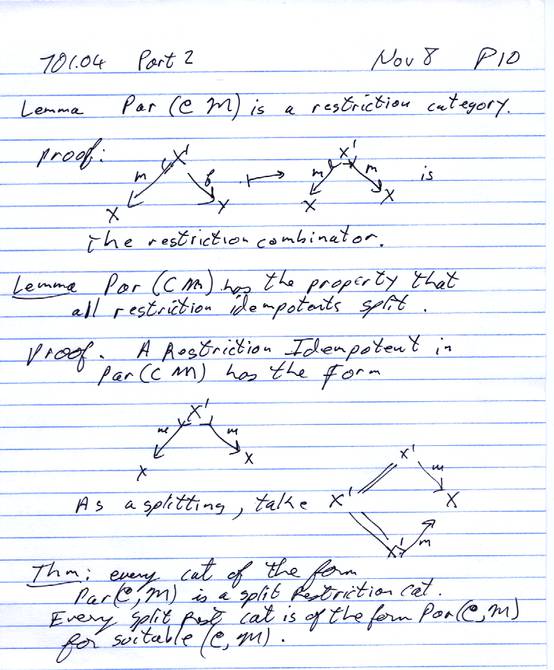 701.04 Part 2 Nov 8 P10
Lemma Par (C M) is a restriction category.
proof:
X' X'
m f ↦ m m is
X Y X X
the restriction combinator.
Lemma Par (C M) has the property that
all restriction idempotents split.
Proof. A Restriction Idempotent in
Par (C M) has the form
X'
m m
X X
X'
m
As a splitting, take X' X
X' m
Thm: every cat of the form
Par(C, M) is a split Restriction cat.
Every split Rest cat is of the form Par(C, M)
for suitable (C, M).